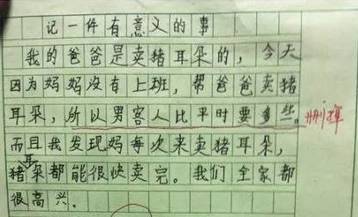 记一件有意义的事
我的爸爸是卖猪耳朵的，今天
因为妈妈没有上班，帮爸爸卖猪
耳朵，所以男客人比平时要多些。删掉
而且我发现妈每次来卖猪耳朵，
猪耳朵都能很快卖完。我们全家都
很高兴。